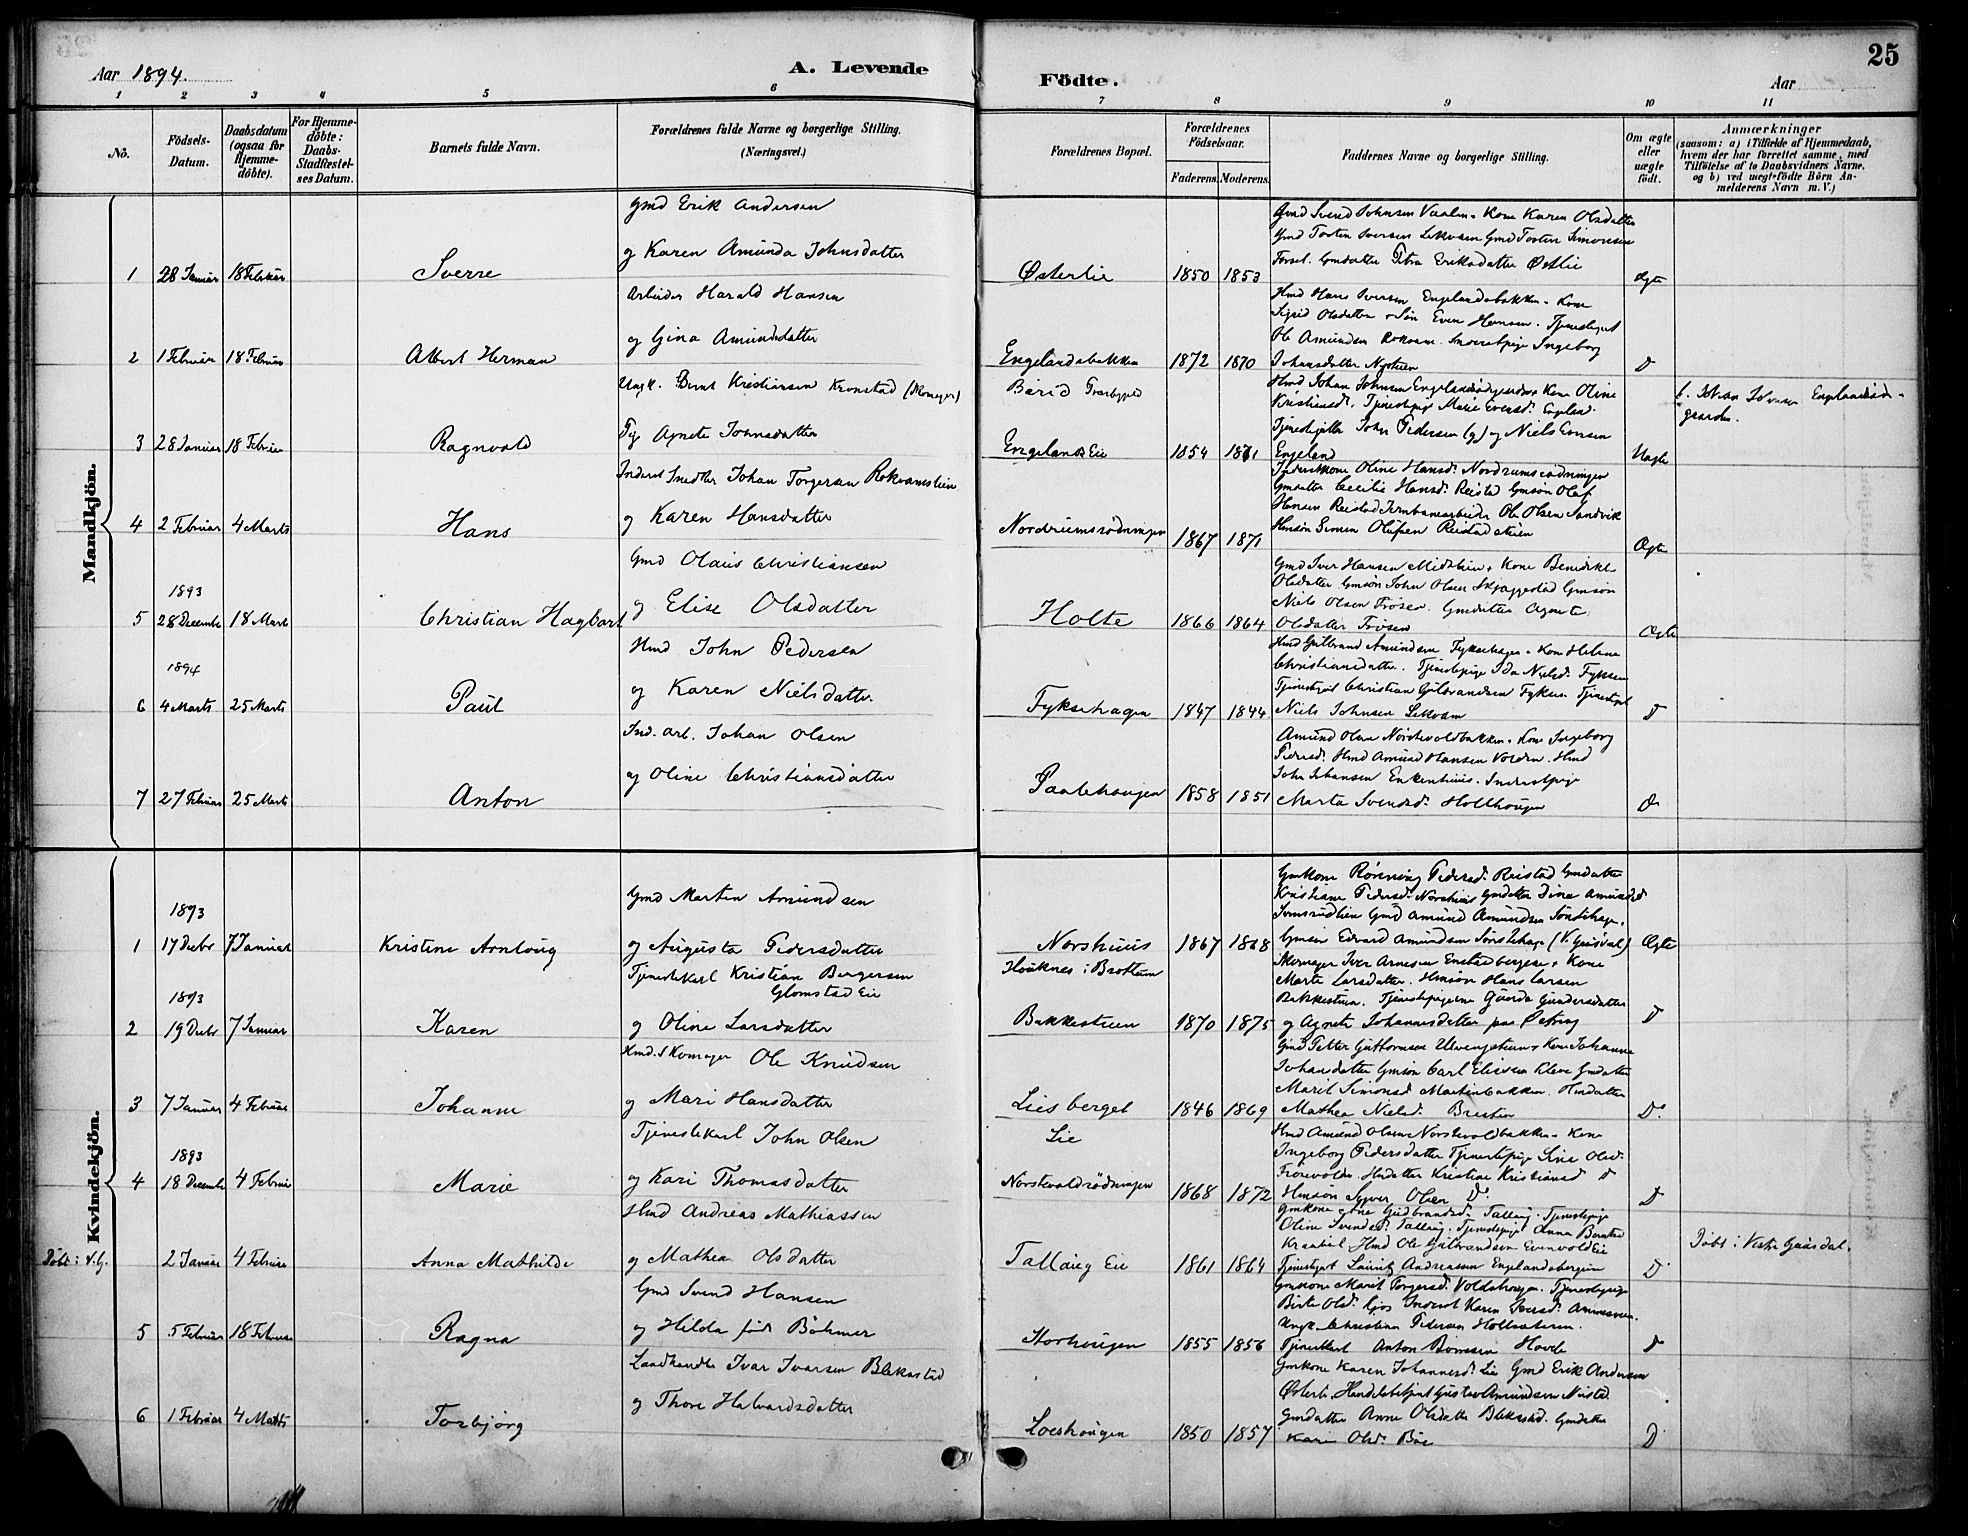 25
Aar 1894.
A. Levende Födte.
Aar
1 2 3 4 5 6 7 8 9 10 11
Nô.
Födsels-Datum.
Daabsdatum (ogsaa for Hjemme-döbte).
For Hjemme-döbte: Daabs-Stadfæstel-ses Datum.
Barnets fulde Navn.
Forældrenes fulde Navne og borgerlige Stilling. (Næringsvei.)
Forældrenes Bopæl.
Forældrenes Födselsaar.
Faderens. Moderens.
Faddernes Navne og borgerlige Stilling.
Om ægte eller uægte födt.
Anmærkninger (saasom: a) i Tilfælde af Hjemmedaab, hvem der har forrettet samme, med Tilföielse af to Daabsvidners Navne, og b) ved uægte födte Börn An-melderens Navn m. V.)
Mandkjön.
Gmd Erik Andersen
og Karen Amunda Johnsdatter
1 28 Januar 18 Februar Sverre Østerlie 1850 1853 Ægte
Gmd Svend Johnsen Kone Karen Olsdatter
Gmd Torsten Iversen Lekvam Gmd Torsten Simonsen
Forset. Gmdatter Petra Eriksdatter Østlie
Arbeider Harald Hansen
og Gina Amundsdatter
2 1 Februar 18 Februar Albert Herman Engelandsbakken 1872 1870 D
Hmd Hans Iversen Engelandsbakken. Kone
Sigrid Olsdatter Søn Even Hansen. Tjenestegut
Ole Amundsen Rokvam. Ingeborg
Johansdatter Nysteen
Ungk. Bernt Kristiansen Kronstad (Skomager) Birid
Pige Agnete Johnsdatter
3 28 Januar 18 Februar Ragnvald Engelands Eie 1854 1871 Uægte
Hmd Johan Johnsen Kone Oline
Kristiansd. Tjenestepige Marie Eversd. Engeland
John Pedersen (g) og Niels Evensen
Engeland
b. Johan Johnsen Engelandsød-
gaarden.
Inderst Snedker Johan Torgersen Rokvamsteien
og Karen Hansdatter
4 2 Februar 4 Marts Hans Nordrumsrødningen 1867 1871 Ægte
Inderstkone Oline Hansd. Nordrumsrødningen
Gmdatter Cecilie Hansd. Reistad Gmsøn Olaf
Hansen Reistad Jernbanearbeider Ole Olsen Sandvik
Hmsøn Simen Olufsen Reistadsteien
Gmd Olaus Christiansen
1893
og Elise Olsdatter
5 28 Decembr 18 Marts Christian Hagbart Holte 1866 1864 Ægte
Gmd Iver Hansen Kone Benedikte
Olsdatter Gmsøn John Olsen Skjæggestad Gmsøn
Niels Olsen Frøsen. Gmdatter Agnete
Olsdatter Frøsen
Hmd John Pedersen
1894
og Karen Nielsdatter.
6 4 Marts 25 Marts Paul Fyksehagen 1847 1844 D
Hmd Gulbrand Amundsen Fyksehagen. Kone Helene
Christiansdatter. Tjenestepige Ida Nielsd. Fyksen
Christian Gulbrandsen Fyksen Tjenestegut
Niels Johnsen Lekvam
Ind. arb. Johan Olsen
og Oline Christiansdatter
7 27 Februar 25 Marts Anton Paalehaugen 1858 1851 D
Amund Olsen Norstevoldbakken. Kone Ingeborg
Pedersd. Hmd Amund Hansen Volden. Hmd
John Johansen Enkenhuus. Inderstpige
Marta Svendsd. Holthougen
Kvindekjön.
Gmd Marten Amundsen
1893
og Augusta Pedersdatter
1 17 Decbr 7 Januar Kristine Arnloug Norshuus 1867 1868 Ægte
Gmkone Rønnoug Pedersd. Reistad Gmdatter
Kristiane Pedersd. Norshuus Gmdatter Dina Amundsd
Gmd Amund Amundsen Sønstehage.
Gmsøn Edvard Amundsen Sønstehage (V. Gausdal)
Tjenestekarl Kristian Bergersen Houknes i Brøttum
Glomstad Eie
1893
og Oline Larsdatter
2 19 Decbr 7 Januar Karen Bakkesteien 1870 1875 D
Skomager Iver Arnesen Kone
Marte Larsdatter. Hmsøn Hans Larsen
Bakkestuen. Tjenestepigerne Gunda Gundersdatter
og Agnete Johannesdatter paa
Hmd. Skomager Ole Knudsen
og Mari Hansdatter
3 7 Januar 4 Februar Johanne Liesberget 1846 1869 D.
Gmd Petter Guttormsen Kone Johanne
Johansdatter Gmsøn Carl Eliesen Kleve Gmdatter
Marit Simonsd Martinbakken. Hmdatter
Mathea Nielsd. Bresten
Tjenestekarl John Olsen Lie
1893
og Kari Thomasdatter
4 18 Decembr 4 Februar Marie Norstevoldrødningen 1868 1872 D
Hmd Amund Olsen Norstevoldbakken. Kone
Ingeborg Pedersdatter Tjenestepige Olsd.
Hmdatter Kristine Kristiansd D
Hmsøn Syver Olsen D.
Hmd Andreas Mathiassen
og Mathea Olsdatter
Döbt i V.G. 2 Januar 4 Februar Anna Mathilde Talloug Eie 1861 1864 D.
Gmkone Ane Gudbrandsd. Talloug. Tjenestepige
Oline Svendsd. Talloug. Tjenestepige Anna Berntsd
Hmd Ole Gulbrandsen Evenvold Eie
Tjenestegut Laurits Andreassen Engelandsbergum
Döbt i Vestre Gausdal.
Gmd Svend Hansen
og Hilda født Böhmer
5 5 Februar 18 Februar Ragna Storhougen 1855 1856 D
Gmkone Marit Torgersd. Voldshougen. Tjenestepige
Birte Olsd. Inderst Karen Iversd.
Ungk. Christian Pedersen Holtsæteren.
Tjenestkarl Anton Hovde
Landhandler Ivar Ivarsen Blekastad
og Thore Halvardsdatter
6 1 Februar 4 Marts Torbjørg Loeshougen 1850 1857 D.
Gmkone Karen Johannesd. Lie Gmd Erik Andersen
Østerlie. Handelsbetjent Gustav Amundsen
Gmdatter Anne Olsdatter Blekastad. Gmdatter
Kari Olsd. Bøe